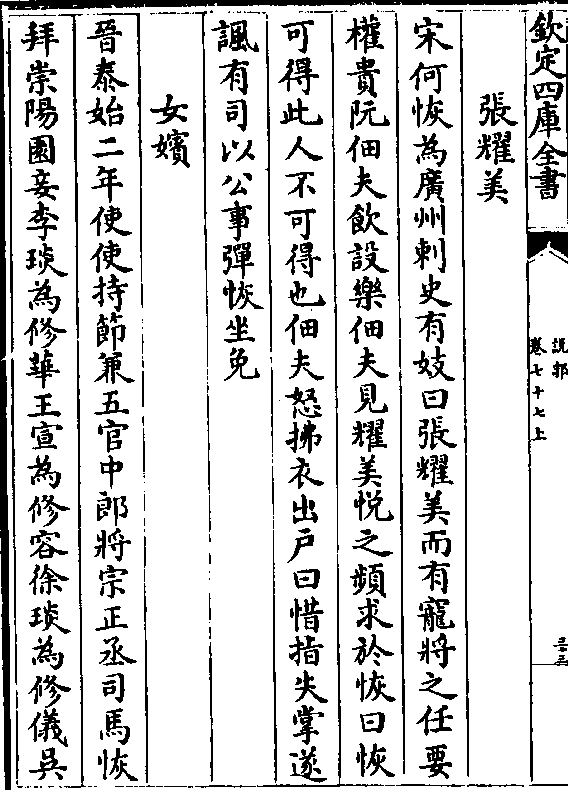 欽定四庫全書
説郛
卷七十七上
張耀美
宋何恢為廣州刺史有妓曰張耀美而有寵將之任要
權貴阮佃夫飲設樂佃夫見耀美悦之頻求於恢曰恢
可得此人不可得也佃夫怒拂衣出户曰惜指失掌遂
諷有司以公事彈恢坐免
女嬪
晉泰始二年使使持節兼五官中郎將宗正丞司馬恢
拜崇陽園妾李琰為修華王宣為修容徐琰為修儀吳